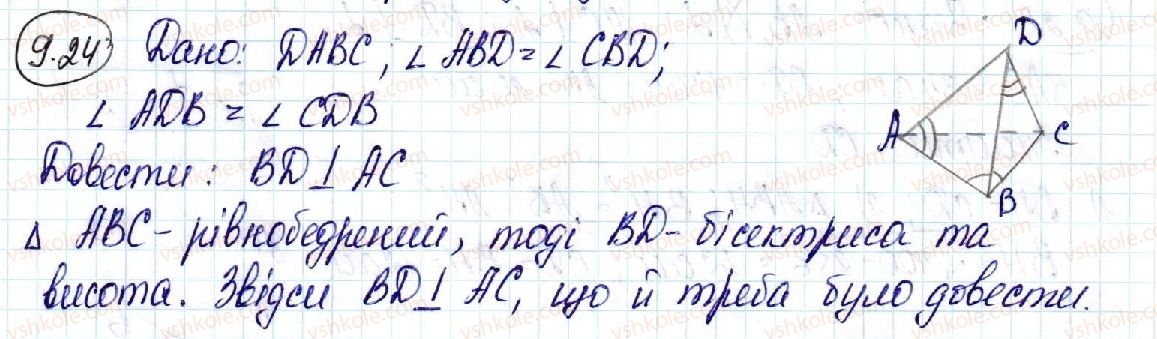 9.24 Дано: DABC, ∠ ABD = ∠ CBD;
∠ ADB = ∠ CDB
Довести: BD ⊥ AC
Δ ABC - рівнобедрений, тоді BD - бісектриса та
висота. Звідси BD ⊥ AC, що й треба було довести.
D
A
C
B